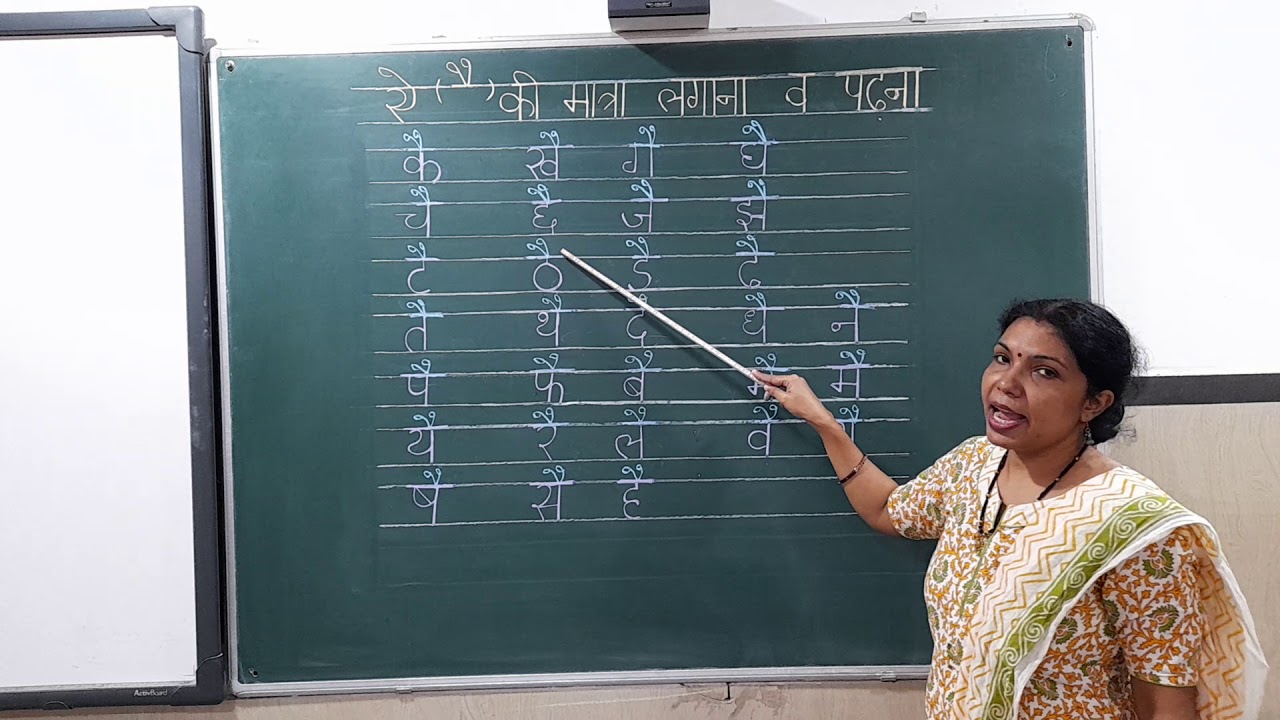 ऐ ( ै ) की मात्रा लगाना व पढ़ना
कै खै गै घै
चै छै जै झै
टै ठै डै ढै
तै थै दै धै नै
पै फै बै मै
यै रै लै वै
षै सै है
ActivBoard